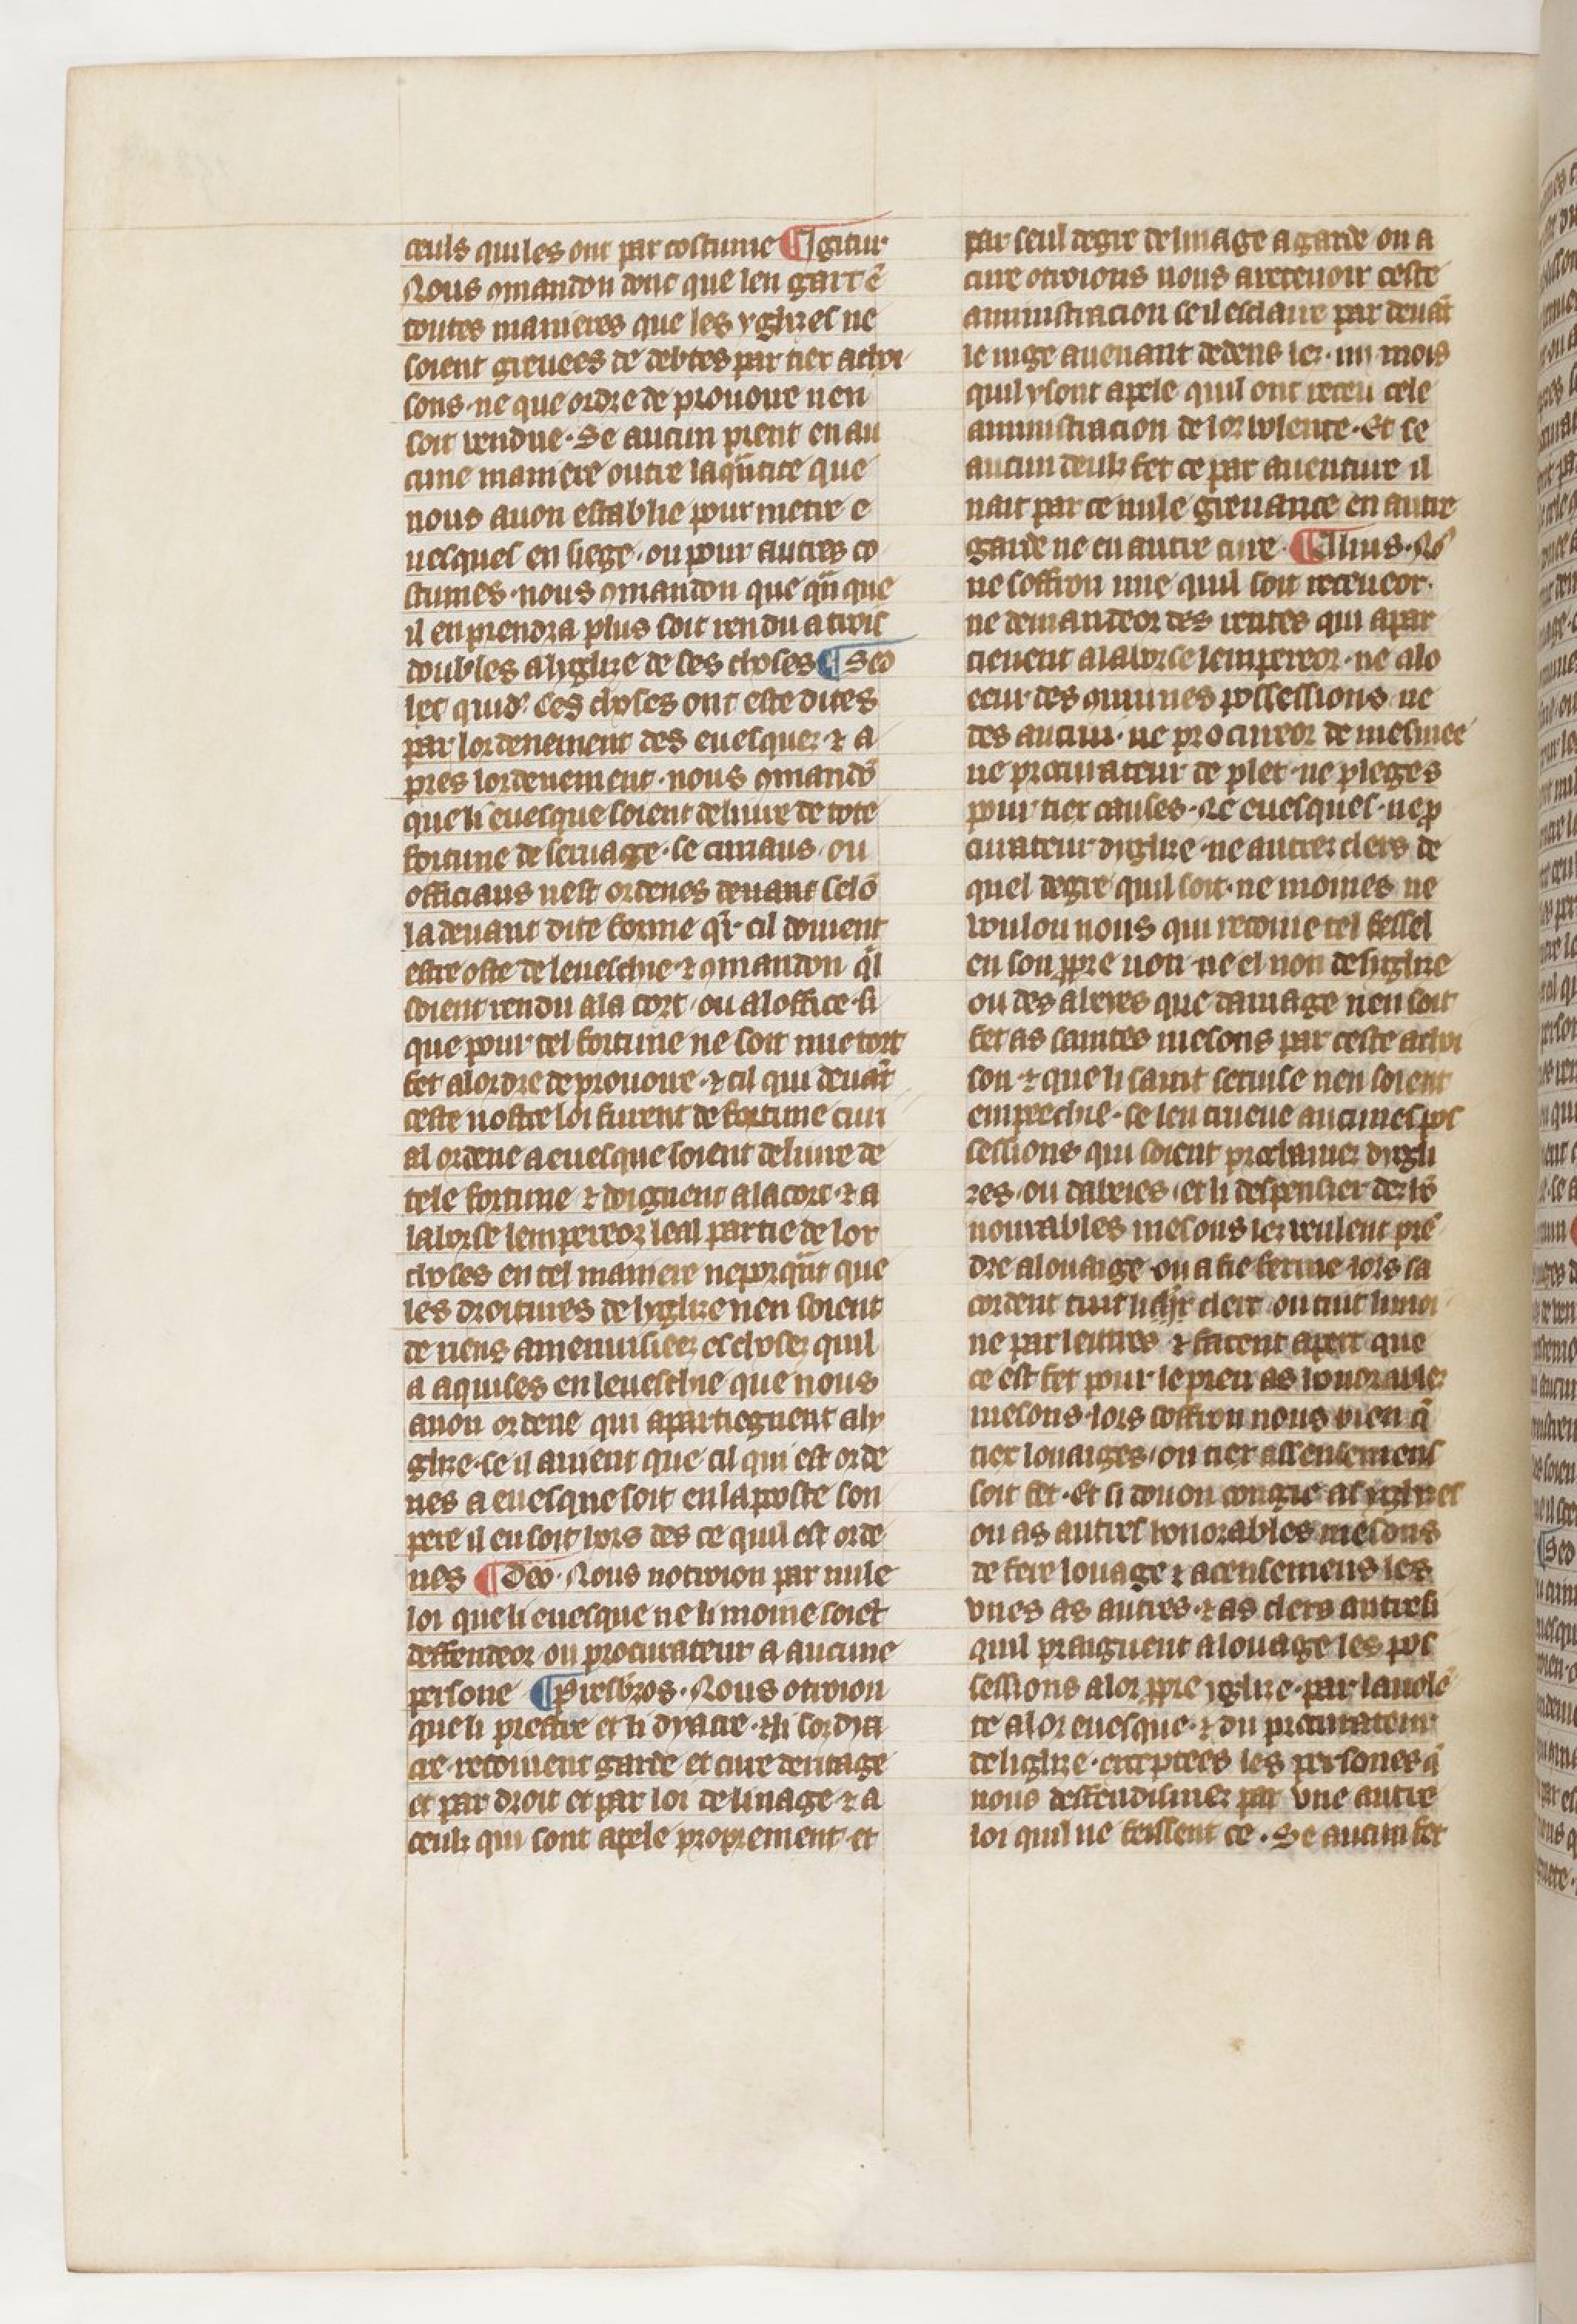 ceuls qui les ont par costume ¶ Igitur
Nous ꝯmandon donc que len gart ē
toutes manieres que les yglises ne
soient greuees de debtes par tier achoi
sons · ne que ordre de prouoire nen
soit vendue · Se aucun prent en au
cune maniere outre la qūtite que
nous auon establie pour metre e
uesques en siege · ou pour autres co
stumes · nous ꝯmandon que qūque
il en prendra plus soit rendu a trois
doubles a liglise de ses choses ¶ Sed
let quid' Ces choses ont este dites
par lordenement des euesques · ⁊ a
pres lordenement · nous ꝯmandō
que li euesque soient deliure de tote
fortune de seruage · se curiaus ou
officiaus nest ordenes deuant selō
la deuant dite forme qr̄ cil doiuent
estre oste de leueschie · ⁊ ꝯmandon q̄l
soient rendu a la cort · ou a loffice · si
que pour tel fortune ne soit mie tort
fet a lordre de prouoire · ⁊ cil qui deuāt
ceste nostre loi furent de fortune curi
al ordene a euesque soient deliure de
tele fortune ⁊ doignent a la cort · ⁊ a
la borse lempereor leal partie de lor
choses en tel maniere neporqūt que
les droitures de lyglise nen soient
de riens amenuisiees es choses quil
a aquises en leueschie que nous
auon ordene qui apartiegnent a ly
glise · se il auient que cil qui est orde
nes a euesque soit en la poste son
pere il en soit hors des ce quil est orde
nes ¶ Deo · Nous notroion par nule
loi que li euesque ne li moine soiēt
deffendeor ou procurateur a aucune
persone ¶ Presbros · Nous otroion
que li prestre et li dyacre · ⁊ li sordia
cre · recoiuent garde et cure deritage
et par droit et par loi de linage · ⁊ a
ceuls qui sont apele proprement et
par seul degre de linage a garde ou a
cure otroions nous a retenoir ceste
aministracion se il esclaire par deuāt
le iuge auenant dedens les · iiii · mois
quil y sont apele quil ont receu cele
aministracion de lor volente · Et se
aucun deuls fet ce par auenture il
nait par ce nule greuance en autre
garde ne en autre cure · ¶ Alius · No᷑
ne soffron mie quil soit receueor ·
ne demandeor des rentes qui apar
tienent a la borse lempereor · ne alo
eeur des ꝯmunes possessions ne
des aucun · ne procureor de mesniee
ne procurateur de plet · ne pleges
pour tier causes · Ne euesques · ne ꝓ
curateur diglise · ne autres clers de
quel degre quil soit · ne moines ne
voulon nous qui recoiue tel fessel
en son ꝓpre non · ne el non de liglise
ou des abeyes que damage nen soit
fet as saintes mesons par ceste achoi
son · ⁊ que li saint seruise nen soient
empeechie · se len trueue aucunes pos
sessions qui soient procheines dygli
ses · ou dabeies · et li despensier des ho
nourables mesons les veulent prē
dre a louaige · ou a fie ferme lors sa
cordent tuit li clerc ou tuit li moi
ne par lettres ⁊ facent apert que
ce est fet pour le preu as honorables
mesons · lors soffron nous bien q̄
tier louaiges · ou tier assensemens
soit fet · Et si donon congie as yglises
ou as autres honorables mesons
de fere louage ⁊ acensemens les
vnes as autres · ⁊ as clers autresi
quil praignent a louage les pos
sessions a lor ꝓpre yglise · par la uolē
te a lor euesque · ⁊ du procurateur
de liglise · exceptees les persones q̄
nous deffendismes par vne autre
loi quil ne feissent ce . Se aucun fet